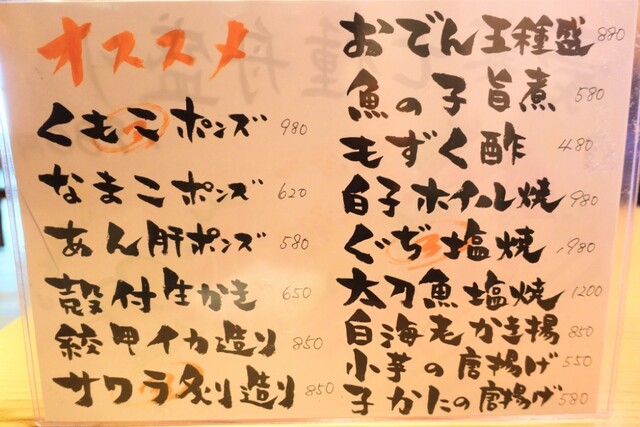 オススメ
くもこポンズ 980
なまこポンズ 620
あん肝ポンズ 580
殻付生かき 650
紋甲イカ造り 850
サワラ炙り造り 850
おでん五種盛 880
魚の子旨煮 580
もずく酢 480
白子ホイル焼 980
ぐぢ塩焼 980
太刀魚塩焼 1200
白海老かき揚 850
小芋の唐揚げ 550
子かにの唐揚げ 580